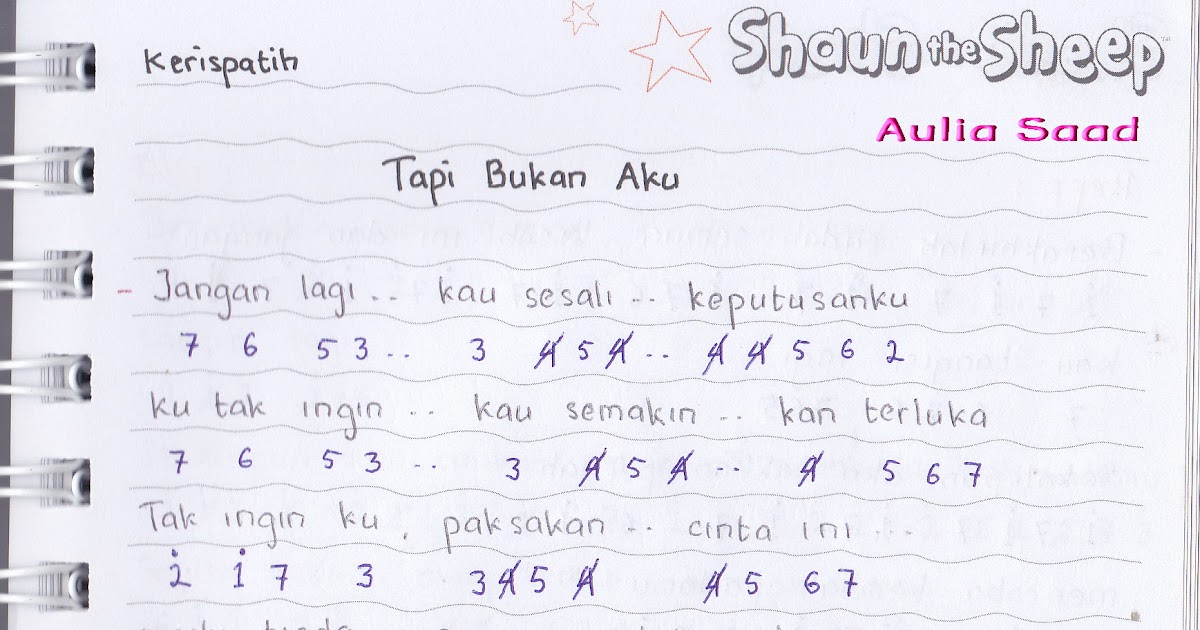 Kerispatih
Shaun the Sheep
Aulia Saad
Tapi Bukan Aku
- Jangan lagi .. kau sesali .. keputusanku
7 6 5 3 .. 3 4̸ 5 4̸ .. 4̸ 4̸ 5 6 2
ku tak ingin .. kau semakin .. kan terluka
7 6 5 3 .. 3 4̸ 5 4̸ .. 4̸ 5 6 7
Tak ingin ku, paksakan .. cinta ini ...
2̇ 1̇ 7 3 3 4̸ 5 4̸ 4̸ 5 6 7